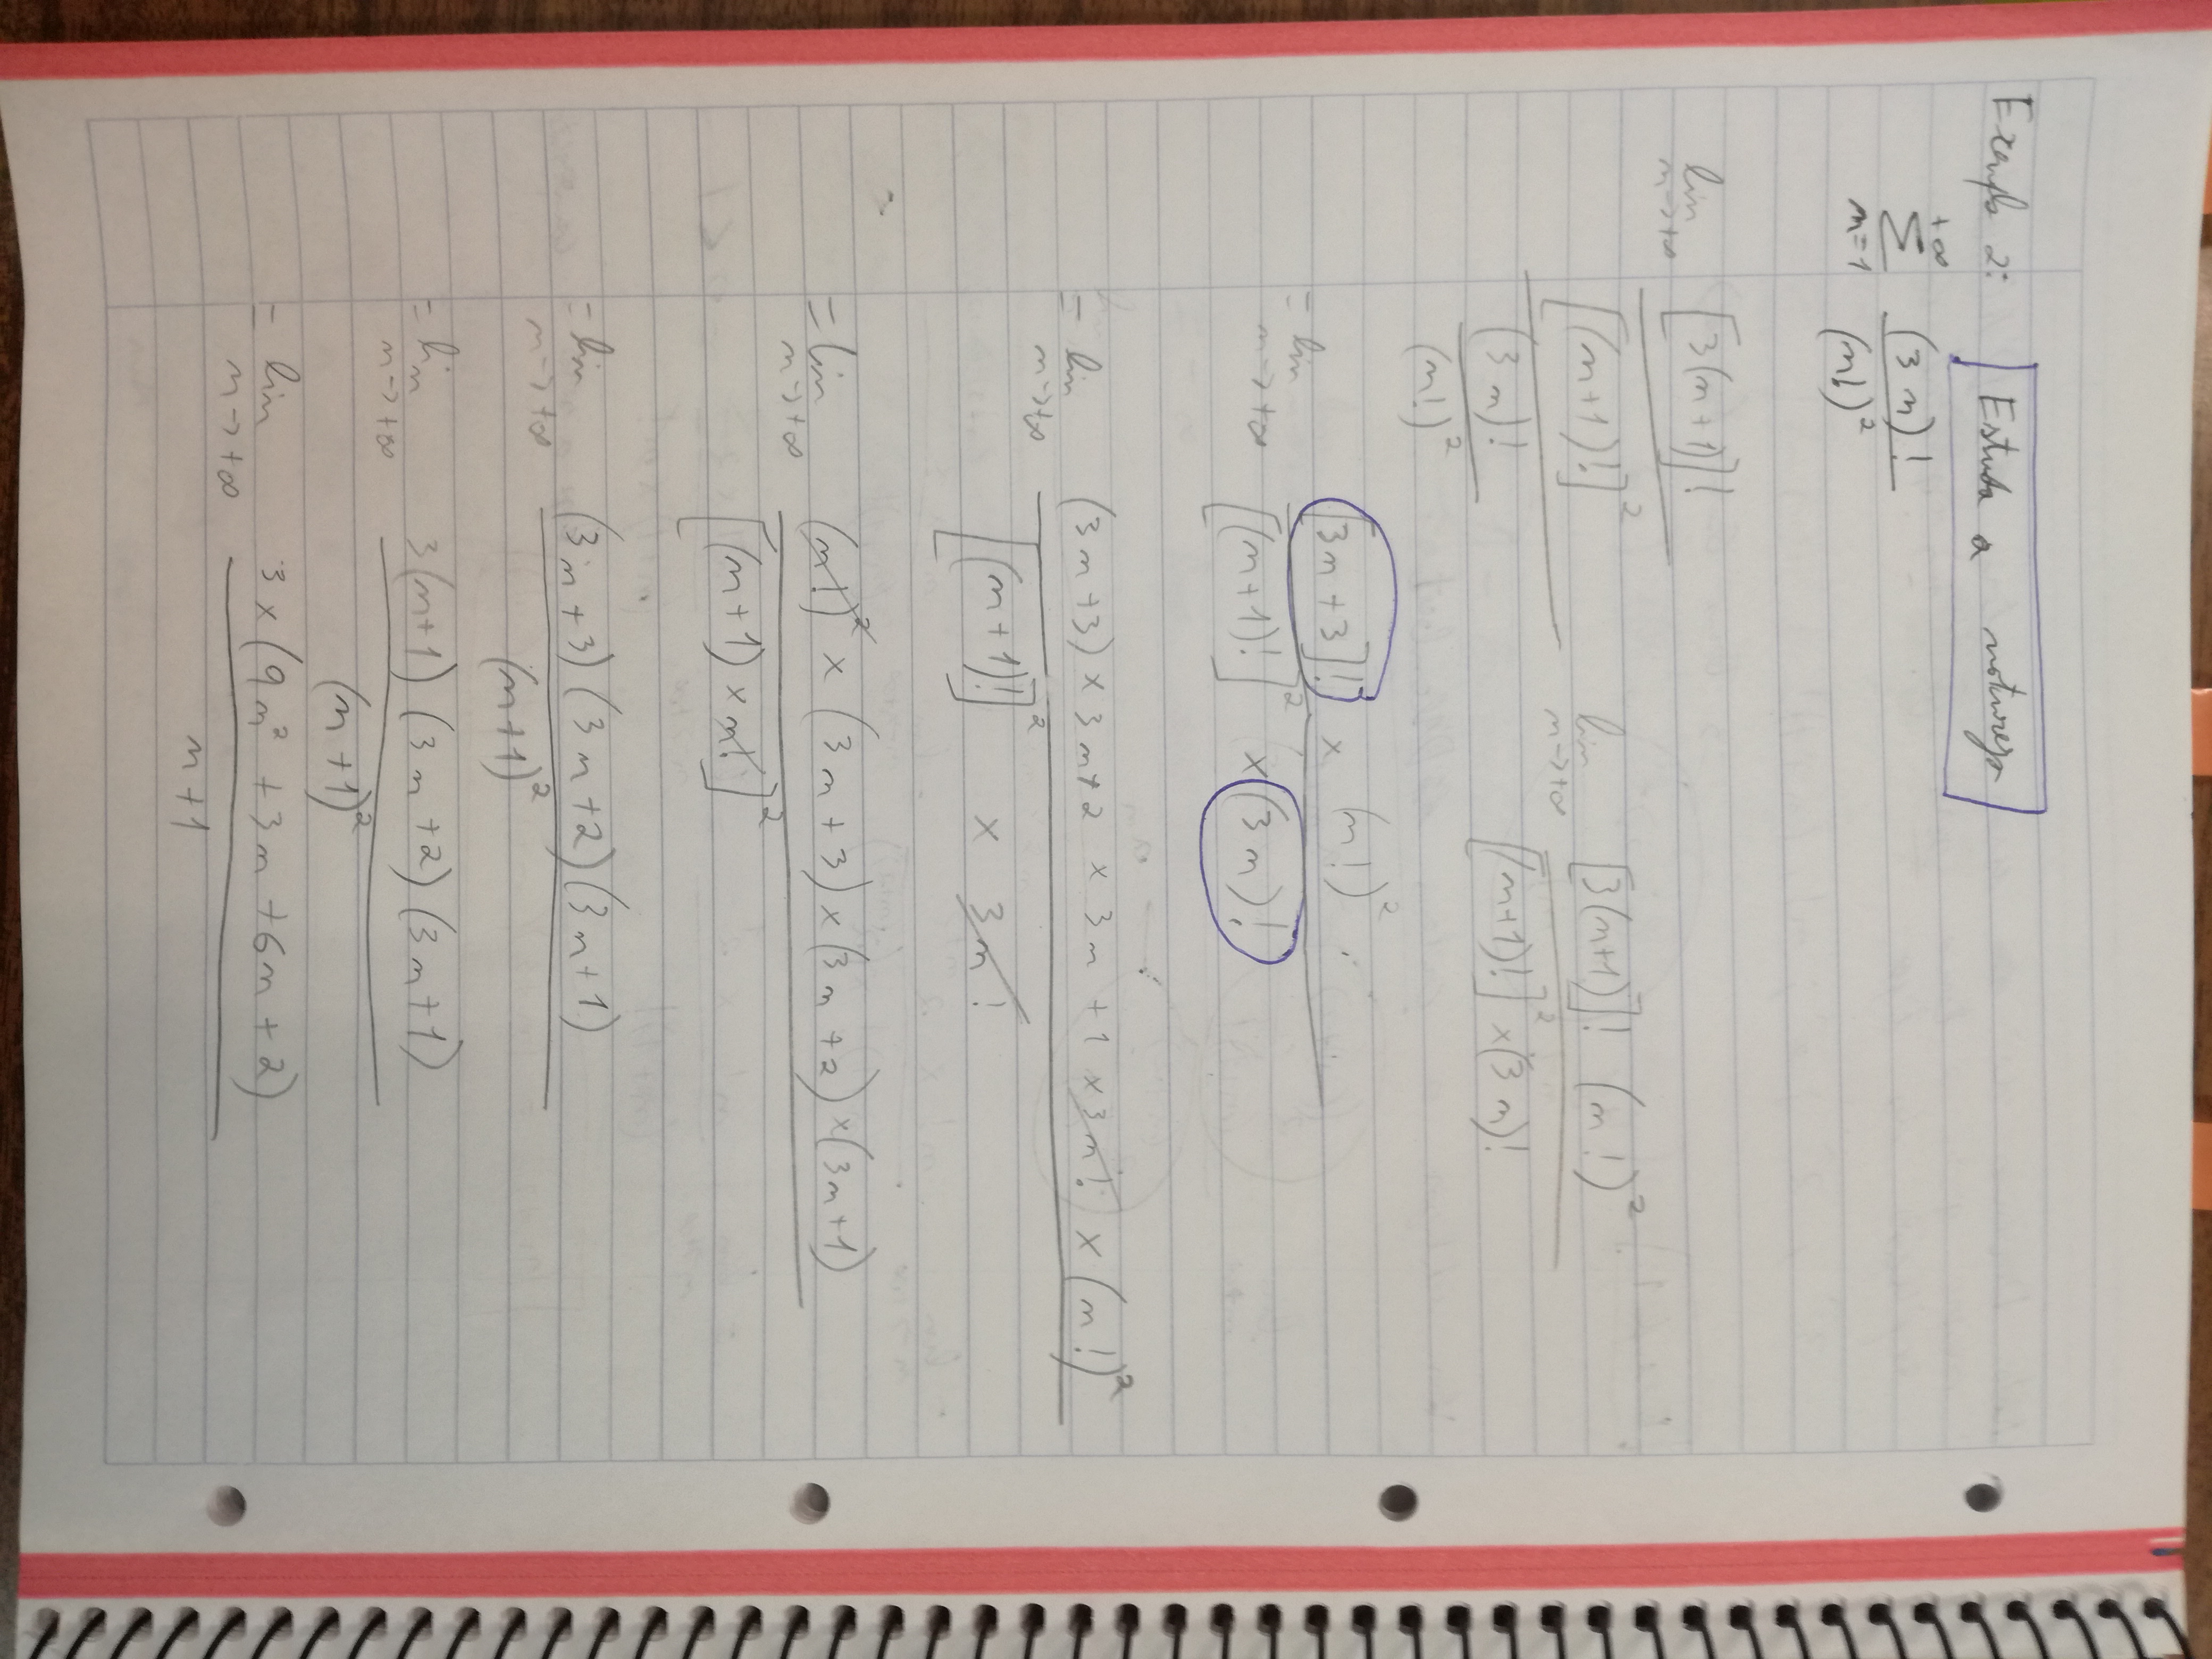 Exemplo 2: Estuda a natureza
+∞
∑ (3n)! / (n!)²
n=1
lim n→+∞ [3(n+1)]! / [(n+1)!]² / (3n)! / (n!)²
lim n→+∞ [3(n+1)]! (n!)² / [(n+1)!]² x (3n)!
= lim n→+∞ [3n+3]! x (n!)² / [(n+1)!]² x (3n)!
= lim n→+∞ (3n+3) x 3n+2 x 3n+1 x 3n! x (n!)² / [(n+1)!]² x 3n!
= lim n→+∞ (n!)² x (3n+3) x (3n+2) x (3n+1) / [(n+1) x n!]²
= lim n→+∞ (3n+3)(3n+2)(3n+1) / (n+1)²
= lim n→+∞ 3(n+1)(3n+2)(3n+1) / (n+1)²
= lim n→+∞ 3 x (9n² + 3n + 6n + 2) / n+1